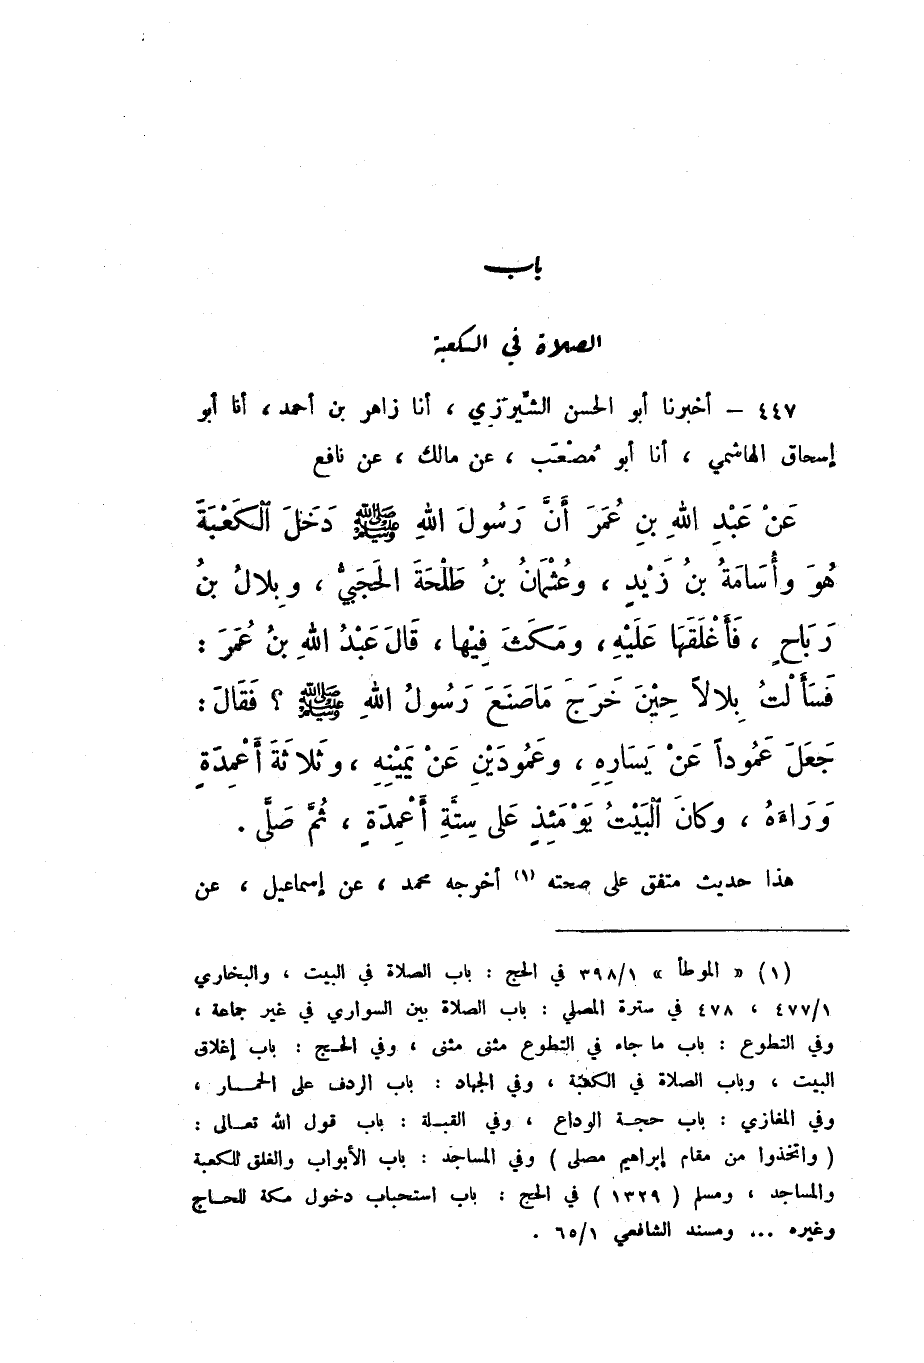 باب
الصلاة في الكعبة
٤٤٧ – أخبرنا أبو الحسن الشَّيرَزي ، أنا زاهر بن أحمد ، أنا أبو
إسحاق الهاشمي ، أنا أبو مُصْعَب ، عن مالك ، عن نافع
عَنْ عَبْدِ اللهِ بنِ عُمَرَ أَنَّ رَسُولَ اللهِ ﷺ دَخَلَ الْكَعْبَةَ
هُوَ وأُسَامَةُ بنُ زَيْدٍ ، وعُثْمَانُ بنُ طَلْحَةَ الحَجَبيُّ ، وبِلالُ بنُ
رَبَاحٍ ، فَأَغْلَقَهَا عَلَيْهِ ، ومَكَثَ فِيْها ، قَالَ عَبْدُ اللهِ بنُ عُمَرَ :
فَسَأَلْتُ بِلالاً حِيْنَ خَرَجَ مَاصَنَعَ رَسُولُ اللهِ ﷺ ؟ فَقَالَ :
جَعَلَ عَمُوداً عَنْ يَسَارِهِ ، وعَمُودَيْنِ عَنْ يَمِيْنِهِ ، وثَلاثَةَ أَعْمِدَةٍ
وَرَاءَهُ ، وكانَ الْبَيْتُ يَوْمَئِذٍ عَلى سِتَّةِ أَعْمِدَةٍ ، ثُمَّ صَلَّى .
هذا حديث متفق على صحته (١) أخرجه محمد ، عن إسماعيل ، عن
(١) « الموطأ » ٣٩٨/١ في الحج : باب الصلاة في البيت ، والبخاري
٤٧٧/١ ، ٤٧٨ في سترة المصلي : باب الصلاة بين السواري في غير جماعة ،
وفي التطوع : باب ما جاء في التطوع مثنى مثنى ، وفي الحج : باب إغلاق
البيت ، وباب الصلاة في الكعبة ، وفي الجهاد : باب الردف على الحمار ،
وفي المغازي : باب حجة الوداع ، وفي القبلة : باب قول الله تعالى :
( واتخذوا من مقام إبراهيم مصلى ) وفي المساجد : باب الأبواب والغلق للكعبة
والمساجد ، ومسلم ( ١٣٢٩ ) في الحج : باب استحباب دخول مكة للحاج
وغيره ... ومسند الشافعي ٦٥/١ .